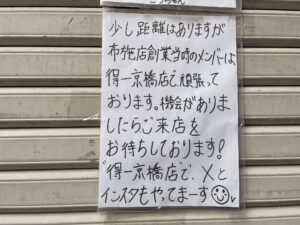 少し距離はありますが
布施店創業当時のメンバーは、
得一京橋店で、頑張って
おります。機会がありま
したらご来店を
お待ちしております!
"得一京橋店"で、Xと
インスタもやってまーす